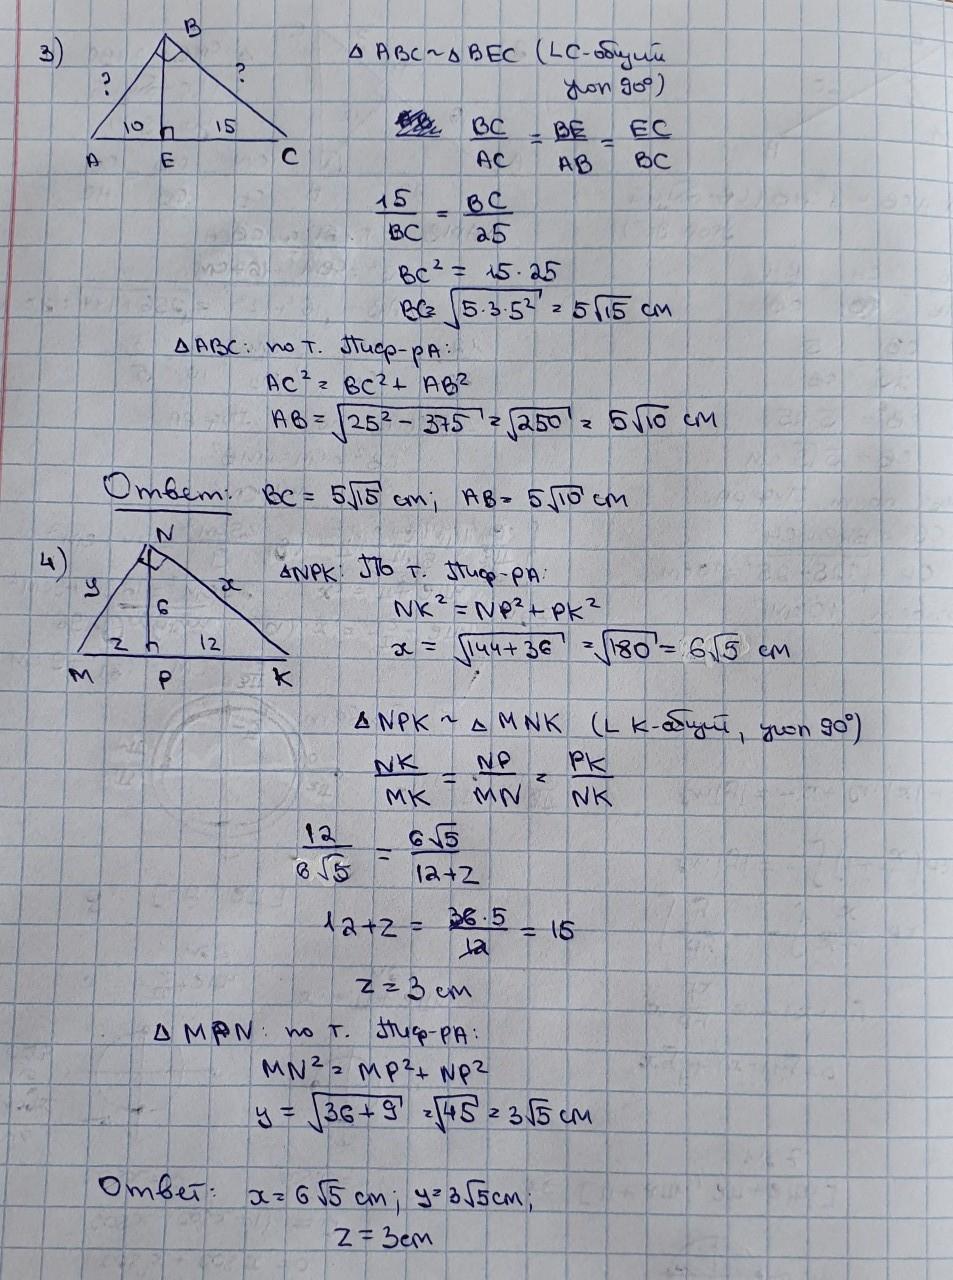 3)
B
?
?
10
15
A
E
C
Δ ABC ~ Δ BEC (∠C-общий
угол 90°)
BC/AC = BE/AB = EC/BC
15/BC = BC/25
BC² = 15·25
BC = √(5·3·5²) = 5√15 см
ΔABC: по т. Пиф-рА:
AC² = BC² + AB²
AB = √(25² - 375) = √250 = 5√10 см
Ответ: BC = 5√15 см; AB = 5√10 см
4)
N
y
x
6
z
12
M
P
K
ΔNPK: По т. Пиф-рА:
NK² = NP² + PK²
x = √(144+36) = √180 = 6√5 см
Δ NPK ~ Δ MNK (∠ K-общий, угол 90°)
NK/MK = NP/MN = PK/NK
12/6√5 = 6√5/12+z
12+z = 36·5/12 = 15
z = 3 см
Δ MPN: по т. Пиф-рА:
MN² = MP² + NP²
y = √(36+9) = √45 = 3√5 см
Ответ: x = 6√5 см; y = 3√5 см;
z = 3 см